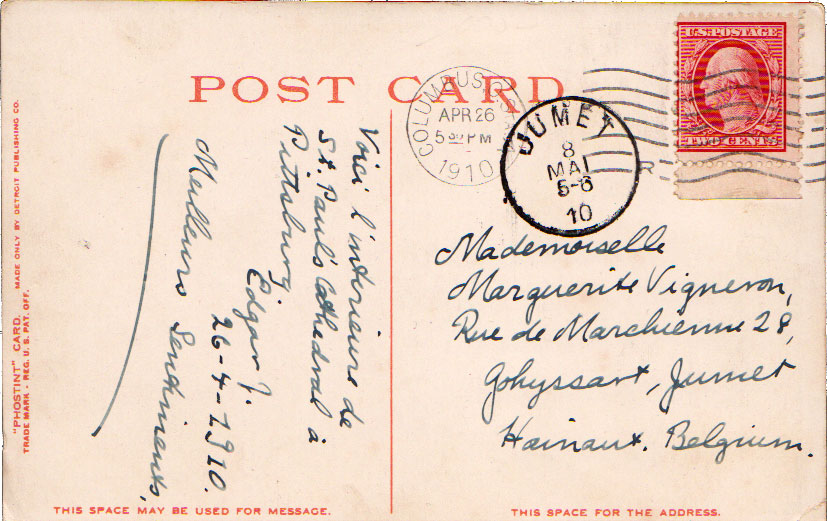 POST CARD
"PHOSTINT" CARD. MADE ONLY BY DETROIT PUBLISHING CO.
TRADE MARK - REG. U. S. PAT. OFF.
Voici l'interieure de
St. Paul's Cathedral à
Pittsburg.
Edgar J.
26-4-1910.
Meilleurs Sentiments,
COLUMBUS
APR 26
5 PM
1910
JUMET
8
MAI
5-6
10
U.S. POSTAGE
TWO CENTS
Mademoiselle
Marguerite Vigneron,
Rue de Marchienne 28,
Gohyssart, Jumet
Hainaut. Belgium.
THIS SPACE MAY BE USED FOR MESSAGE.
THIS SPACE FOR THE ADDRESS.